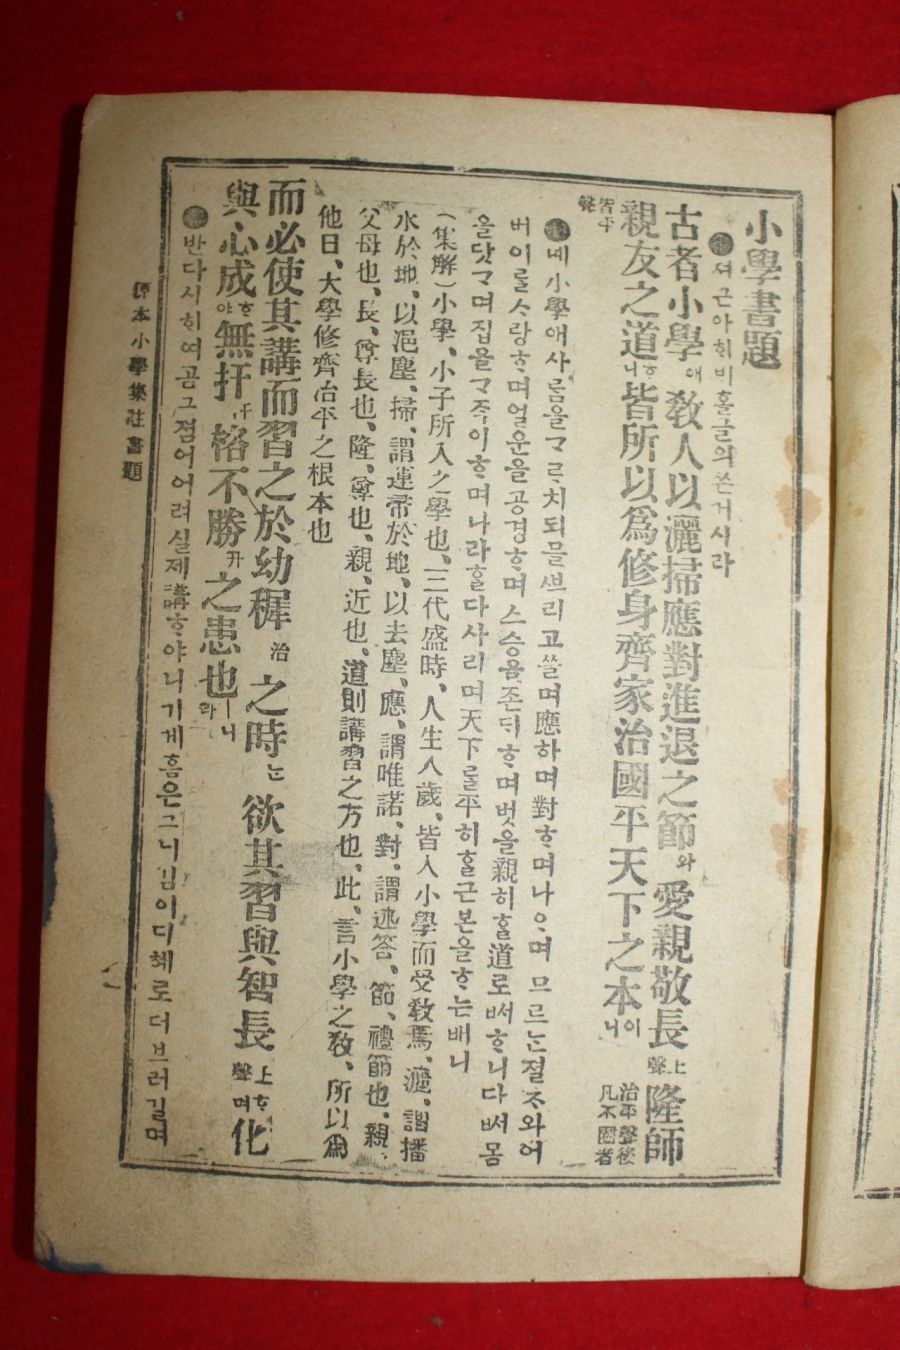 小學書題
져근아희비홀글의쓴거시라
古者小學애敎人以灑掃應對進退之節와愛親敬長上聲隆師
親友之道ㅣ니皆所以爲修身齊家治國平天下之本이니治平聲後凡不圈者
皆平聲
녜小學애사ᄅᆞᆷ을ᄀᆞᄅᆞ치되믈ᄲᅳ리고ᄡᅳᆯ며應하며對ᄒᆞ며나ᄋᆞ며므르ᄂᆞᆫ절ᄎᆞ와어
버이ᄅᆞᆯᄉᆞ랑ᄒᆞ며얼운을공경ᄒᆞ며스승을존ᄃᆡᄒᆞ며벗을親히ᄒᆞᆯ道로ᄡᅥᄒᆞ니다ᄡᅥ몸
을닷ᄀᆞ며집을ᄀᆞᄌᆞᆨ이ᄒᆞ며나라ᄒᆞᆯ다사리며天下ᄅᆞᆯ平히ᄒᆞᆯ근본을ᄒᆞ는배니
(集解)小學、小子所入之學也、三代盛時、人生八歲、皆入小學而受敎焉、灑、謂播
水於地、以浥塵、掃、謂運帚於地、以去塵、應、謂唯諾、對、謂述答、節、禮節也、親、
父母也、長、尊長也、隆、尊也、親、近也、道則講習之方也、此、言小學之敎、所以爲
他日、大學修齊治平之根本也
而必使其講而習之於幼穉治之時ᄂᆞᆫ欲其習與智長上聲ᄒᆞ며化
與心成ᄒᆞ야無扞汗格不勝升之患也ㅣ니라
반다시ᄒᆡ여곰그졈어어려실제講ᄒᆞ야니기게홈은그니김이디혜로더브러길며
原本小學集註書題